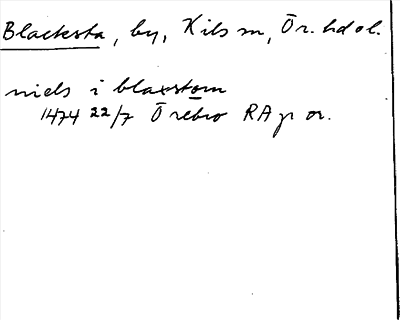 Blacksta, by, Kils sn, Ör. hd ol.
niels i blaxstom
1474 22/7 Örebro RAp or.